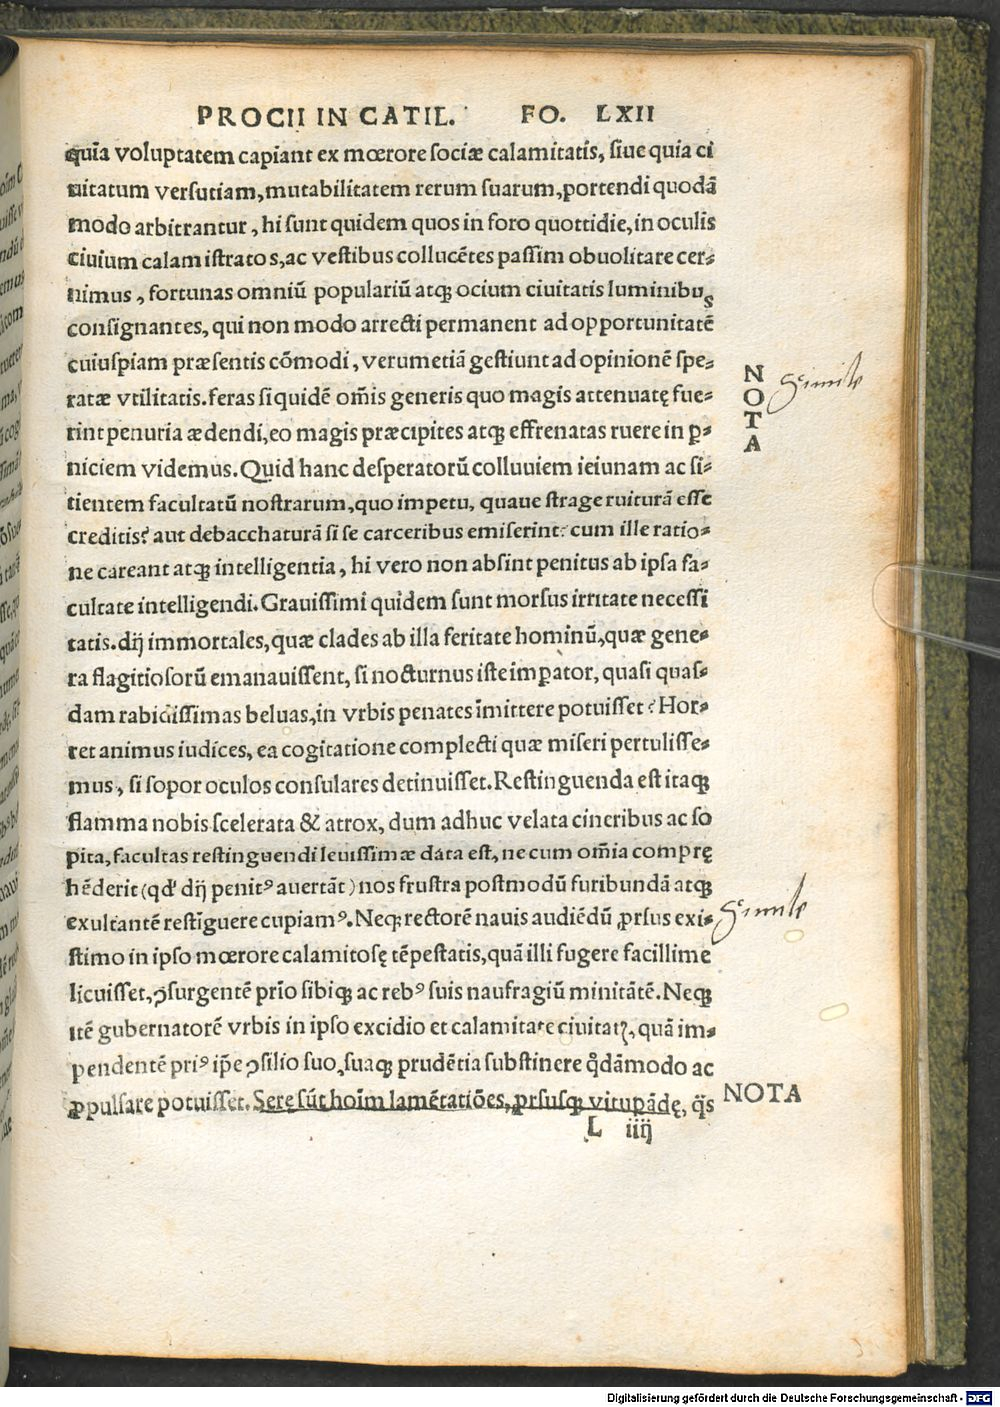 PROCII IN CATIL. FO. LXII
quia voluptatem capiant ex mœrore sociæ calamitatis, siue quia ci
uitatum versutiam, mutabilitatem rerum suarum, portendi quodā
modo arbitrantur, hi sunt quidem quos in foro quottidie, in oculis
ciuium calamistratos, ac vestibus collucētes passim obuolitare cer⸗
nimus, fortunas omniū populariū atq; ocium ciuitatis luminibus
consignantes, qui non modo arrecti permanent ad opportunitatē
cuiuspiam præsentis cōmodi, verumetiā gestiunt ad opinionē spe⸗
ratæ vtilitatis. feras siquidē om̄is generis quo magis attenuatę fue⸗
rint penuria ædendi, eo magis præcipites atq; effrenatas ruere in ꝑ⸗
niciem videmus. Quid hanc desperatorū colluuiem ieiunam ac si⸗
tientem facultatū nostrarum, quo impetu, quaue strage ruiturā esse
creditis? aut debacchaturā si se carceribus emiserint: cum ille ratio⸗
ne careant atq; intelligentia, hi vero non absint penitus ab ipsa fa⸗
cultate intelligendi. Grauissimi quidem sunt morsus irritate necessi
tatis. dij immortales, quæ clades ab illa feritate hominū, quæ gene⸗
ra flagitiosorū emanauissent, si nocturnus iste imꝑator, quasi quas⸗
dam rabidissimas beluas, in vrbis penates īmittere potuisset? Hor⸗
ret animus iudices, ea cogitatione complecti quæ miseri pertulisse⸗
mus, si sopor oculos consulares detinuisset. Restinguenda est itaq;
flamma nobis scelerata & atrox, dum adhuc velata cineribus ac so
pita, facultas restinguendi leuissimæ data est, ne cum om̄ia comprę
hēderit (qd' dij penitꝰ auertāt) nos frustra postmodū furibundā atq;
exultantē restīguere cupiamꝰ. Neq; rectorē nauis audiēdū ꝓrsus exi⸗
stimo in ipso mœrore calamitosę tēpestatis, quā illi fugere facillime
licuisset, ꝯsurgentē prīo sibiq; ac rebꝰ suis naufragiū minitātē. Neq;
itē gubernatorē vrbis in ipso excidio et calamitate ciuitatꝭ, quā im⸗
pendentē priꝰ ip̄e ꝯsilio suo, suaq; prudētia substinere q̄dāmodo ac
ꝓpulsare potuisset. Serę sūt hoīm lamētatiōes, ꝓrsusq; vituꝑādę, q̄s
L iiij
NOTA
Simile
Simile
NOTA
Digitalisierung gefördert durch die Deutsche Forschungsgemeinschaft - DFG